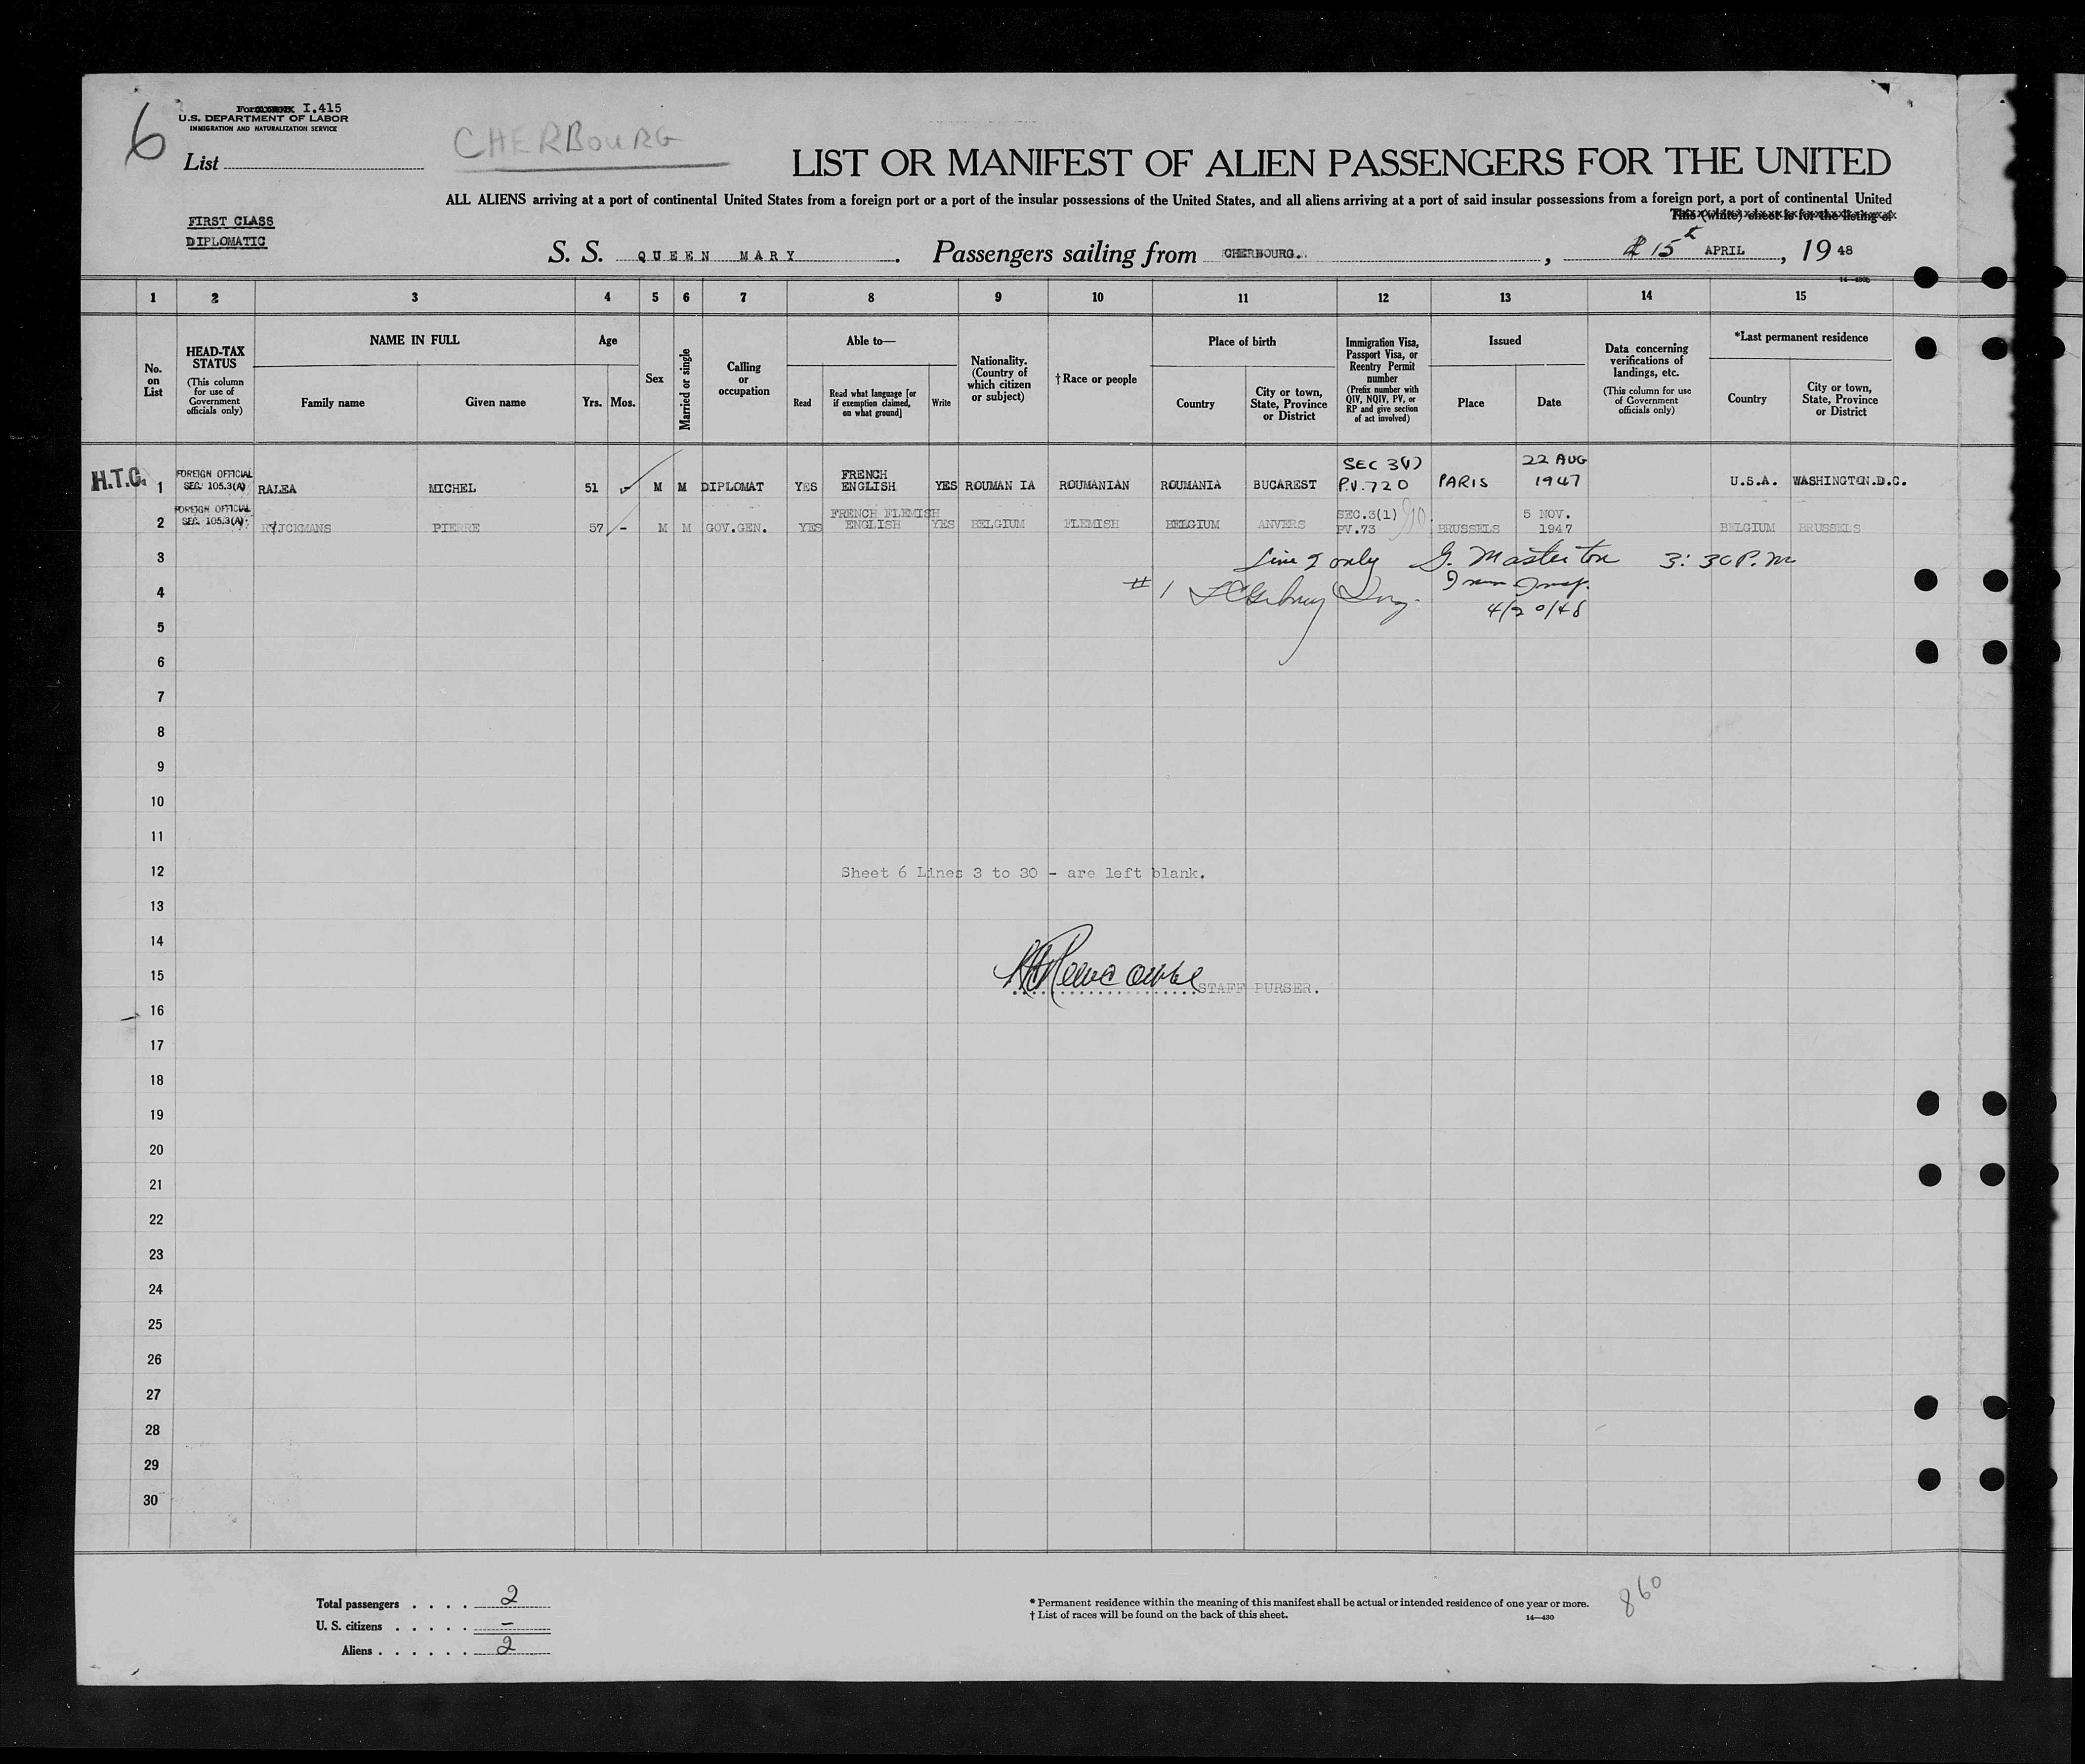 6
Form I.415
U.S. DEPARTMENT OF LABOR
IMMIGRATION AND NATURALIZATION SERVICE
List
CHERBOURG
LIST OR MANIFEST OF ALIEN PASSENGERS FOR THE UNITED
ALL ALIENS arriving at a port of continental United States from a foreign port or a port of the insular possessions of the United States, and all aliens arriving at a port of said insular possessions from a foreign port, a port of continental United
This (white) sheet is for the listing of
FIRST CLASS
DIPLOMATIC
S. S. QUEEN MARY. Passengers sailing from CHERBOURG., 15 APRIL, 19 48
14—430b
1 2 3 4 5 6 7 8 9 10 11 12 13 14 15
No. on List
HEAD-TAX STATUS
(This column for use of Government officials only)
NAME IN FULL
Family name
Given name
Age
Yrs.
Mos.
Sex
Married or single
Calling or occupation
Able to—
Read
Read what language [or if exemption claimed, on what ground]
Write
Nationality. (Country of which citizen or subject)
†Race or people
Place of birth
Country
City or town, State, Province or District
Immigration Visa, Passport Visa, or Reentry Permit number
(Prefix number with QIV, NQIV, PV, or RP and give section of act involved)
Issued
Place
Date
Data concerning verifications of landings, etc.
(This column for use of Government officials only)
*Last permanent residence
Country
City or town, State, Province or District
H.T.C. 1 FOREIGN OFFICIAL SEC. 105.3(A) RALEA MICHEL 51 M M DIPLOMAT YES FRENCH ENGLISH YES ROUMAN IA ROUMANIAN ROUMANIA BUCAREST SEC 3(1) P.V.720 PARIS 22 AUG 1947 U.S.A. WASHINGTON.D.C.
2 FOREIGN OFFICIAL SEC. 105.3(A) RYJCKMANS PIERRE 57 - M M GOV.GEN. YES FRENCH FLEMISH ENGLISH YES BELGIUM FLEMISH BELGIUM ANVERS SEC.3(1) PV.73 BRUSSELS 5 NOV. 1947 BELGIUM BRUSSELS
3 Line 2 only G. Masterton 3:30 P.M.
4 #1 Imm Insp.
4/20/48
5
6
7
8
9
10
11
12 Sheet 6 Lines 3 to 30 - are left blank.
13
14
15 STAFF PURSER.
16
17
18
19
20
21
22
23
24
25
26
27
28
29
30
Total passengers . . . . 2
U. S. citizens . . . . . –
Aliens . . . . . . 2
* Permanent residence within the meaning of this manifest shall be actual or intended residence of one year or more.
† List of races will be found on the back of this sheet.
14—430
860